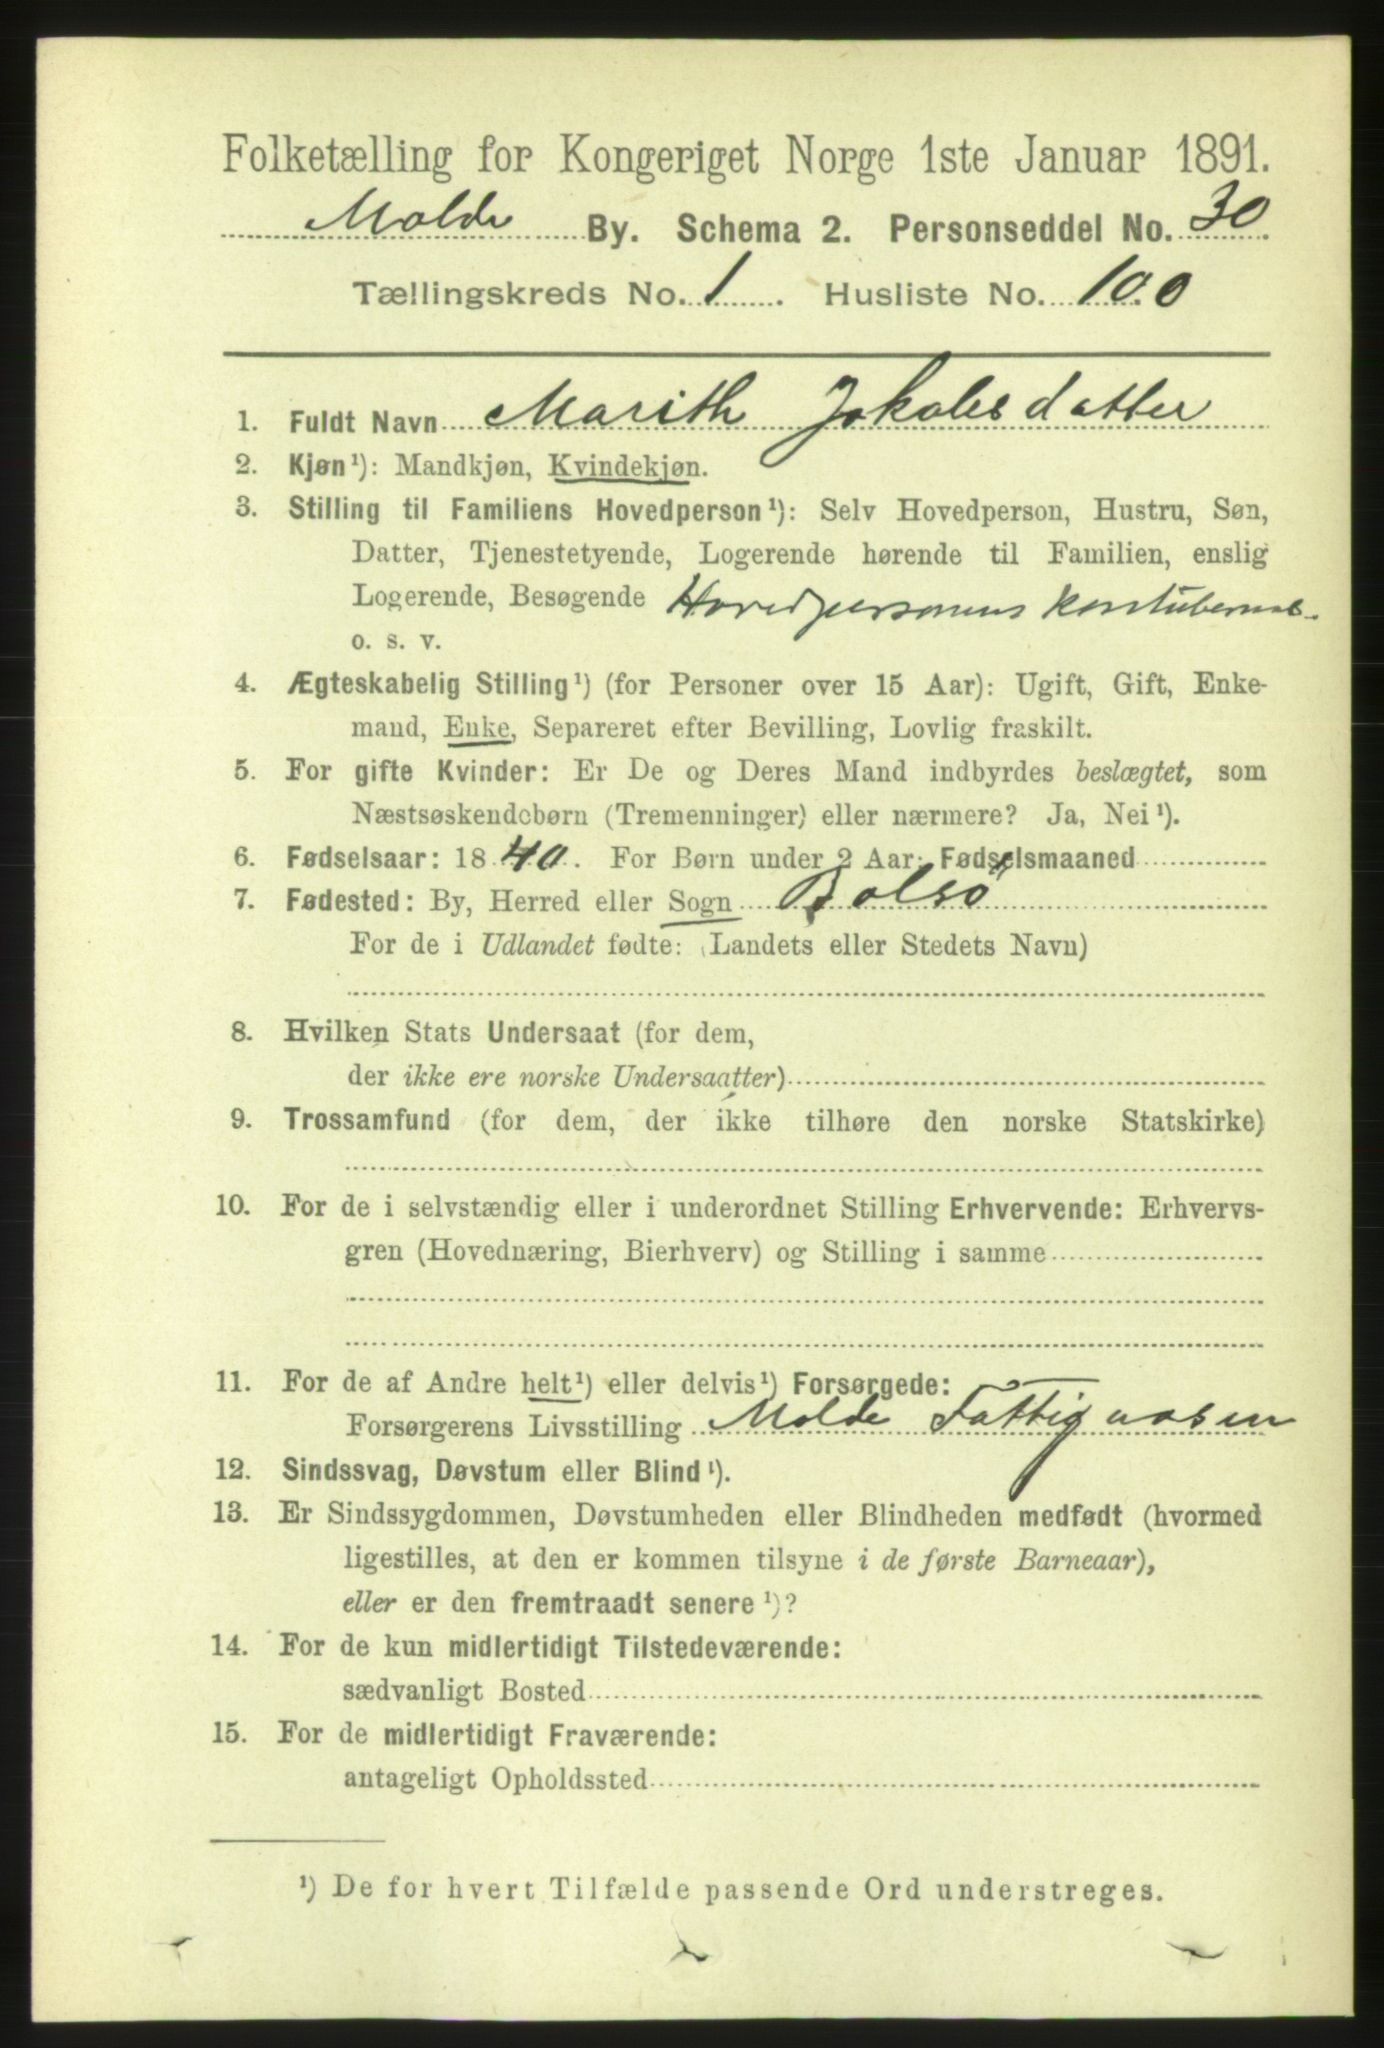 Folketælling for Kongeriget Norge 1ste Januar 1891.
Molde By. Schema 2. Personseddel No. 30
Tællingskreds No. 1. Husliste No. 100
1. Fuldt Navn Marith Jokobsdatter
2. Kjøn¹): Mandkjøn, Kvindekjøn.
3. Stilling til Familiens Hovedperson¹): Selv Hovedperson, Hustru, Søn,
Datter, Tjenestetyende, Logerende hørende til Familien, enslig
Logerende, Besøgende Hovedpersonens
o. s. v.
4. Ægteskabelig Stilling¹) (for Personer over 15 Aar): Ugift, Gift, Enke-
mand, Enke, Separeret efter Bevilling, Lovlig fraskilt.
5. For gifte Kvinder: Er De og Deres Mand indbyrdes beslægtet, som
Næstsøskendebørn (Tremenninger) eller nærmere? Ja, Nei¹).
6. Fødselsaar: 1840. For Børn under 2 Aar: Fødselsmaaned
7. Fødested: By, Herred eller Sogn Bolsö
For de i Udlandet fødte: (Landets eller Stedets Navn)
8. Hvilken Stats Undersaat (for dem,
der ikke ere norske Undersaatter)
9. Trossamfund (for dem, der ikke tilhøre den norske Statskirke)
10. For de i selvstændig eller i underordnet Stilling Erhvervende: Erhvervs-
gren (Hovednæring, Bierhverv) og Stilling i samme
11. For de af Andre helt¹) eller delvis¹) Forsørgede:
Forsørgerens Livsstilling Molde Fattigvæsen
12. Sindssvag, Døvstum eller Blind¹).
13. Er Sindssygdommen, Døvstumheden eller Blindheden medfødt (hvormed
ligestilles, at den er kommen tilsyne i de første Barneaar),
eller er den fremtraadt senere¹)?
14. For de kun midlertidigt Tilstedeværende:
sædvanligt Bosted
15. For de midlertidigt Fraværende:
antageligt Opholdssted
¹) De for hvert Tilfælde passende Ord understreges.